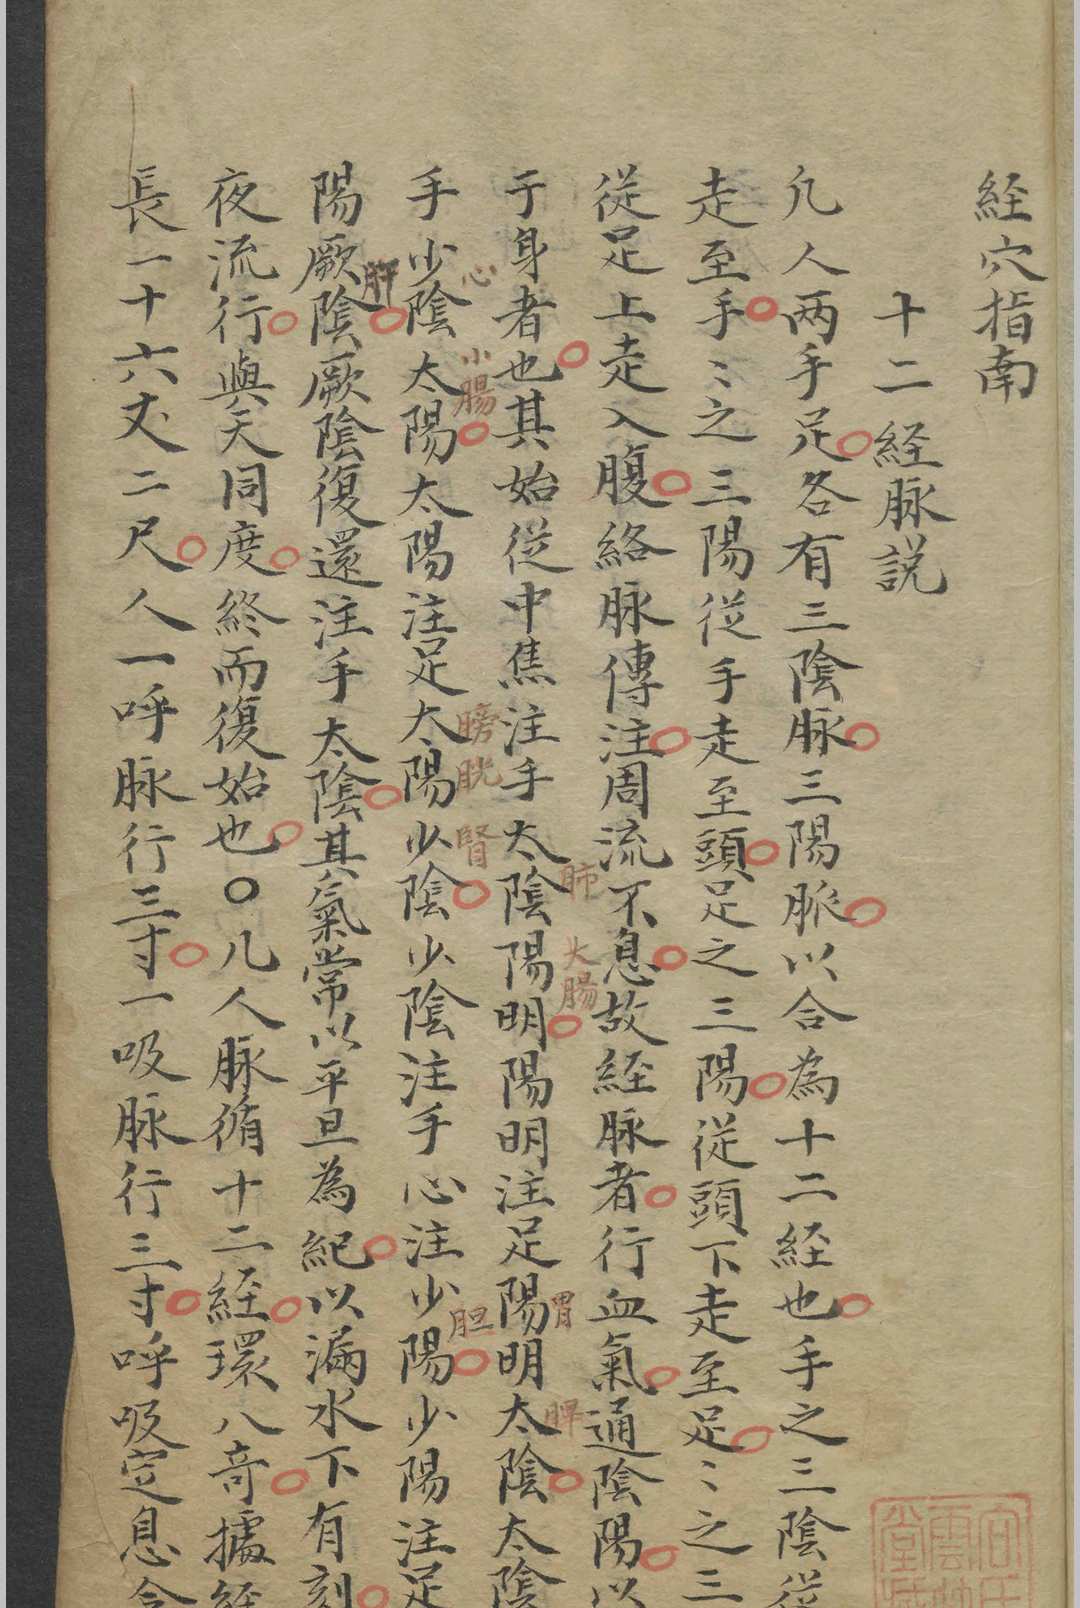 経穴指南
十二経脉説
凢人两手足各有三陰脉三陽脈以合為十二経也手之三陰従
走至手〻之三陽従手走至頭足之三陽従頭下走至足〻之三
従足上走入腹絡脉傳注周流不息故経脉者行血氣通陰陽以
于身者也其始従中焦注手太陰陽明陽明注足陽明太陰太陰
肺
大腸
胃
脾
手少陰太陽太陽注足太陽少陰少陰注手心注少陽少陽注足
心
小腸
膀胱
腎
胆
陽厥陰厥陰復還注手太陰其氣常以平旦為紀以漏水下有刻
肝
夜流行與天同度終而復始也〇凡人脉循十二経環八奇據経
長一十六丈二尺人一呼脉行三寸一吸脉行三寸呼吸定息合